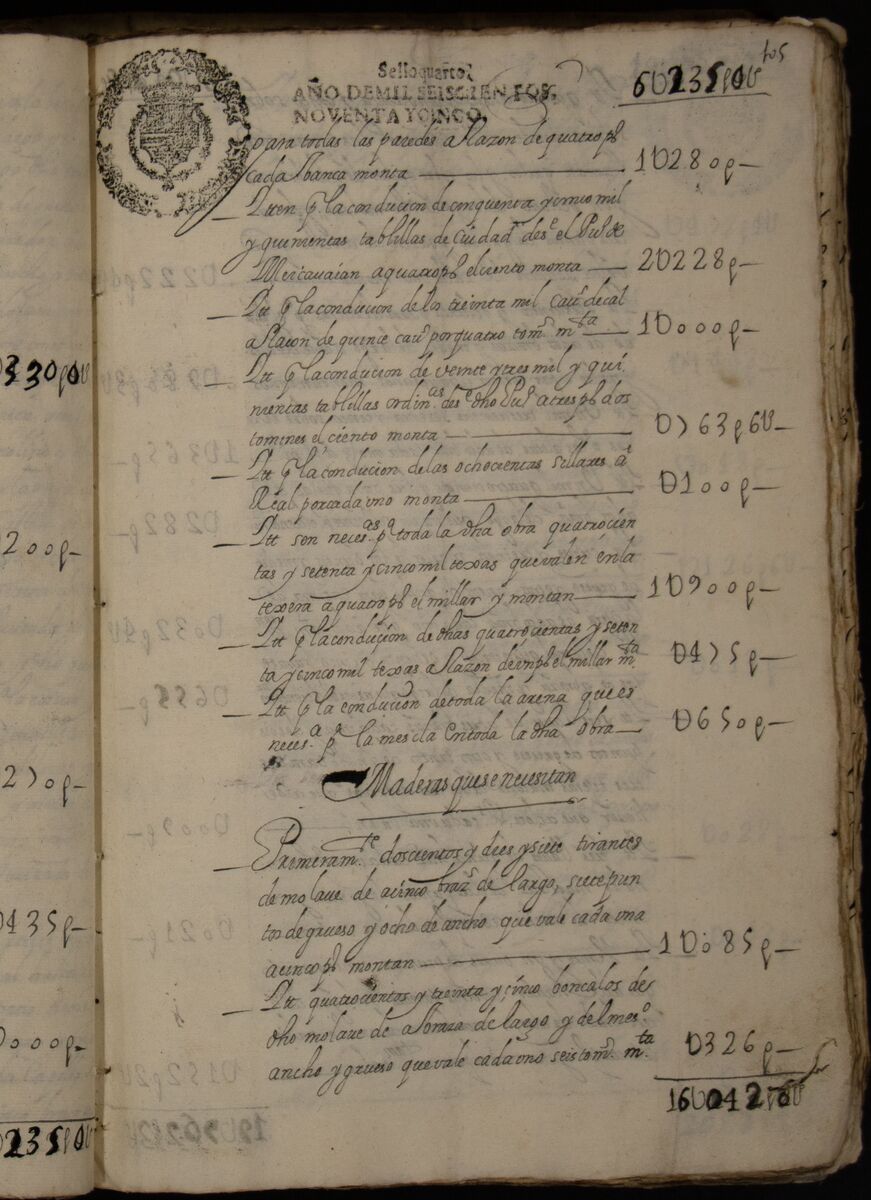 105
Sello quarto
AÑO DE MIL SEISCIENTOS,
NOVENTA Y CINCO.
6U235p0U
para todas las paredes a Razon de quatro ps
cada banca monta — 1U280p
Itten pa la conducion de cinquenta y cinco mil
y quinientas tablillas de Ciudad dese el Puo de
Meicavaian a quatro ps el ciento monta — 2U228p
Itt pa la conducion de los treinta mil cavs de cal
a Racon de quince cavs por quatro toms mta — 1U000p
Itt pa la conducion de veinte y tres mil y qui
nientas tablillas ordinas dese dho Puo a tres ps dos
tomines el ciento monta — U763p6U
Itt pa la conducion de las ochocientas sillares a
Real por cada uno monta — U100p
Itt son necesas pa toda la dha obra quatrocien
tas y setenta y cinco mil texas que valen en la
texera a quatro ps el millar y montan — 1U900p
Itt pa la conducion de dhas quatrocientas y seten
ta y cinco mil texas a Razon de un po el millar mta — U475p
Itt pa la conducion de toda la arena que es
necesa pa la mescla en toda la dha obra — U650p
Maderas que se necesitan
Primeramte doscientos y dies y siete tirantes
de molave de a cinco brazs de largo, siete pun
tos de grueso y ocho de ancho que vale cada una
a cinco ps montan — 1U085p
Itt quatrocientos y treinta y cinco boncalos de
dho molave de a braza de largo y del meso
ancho y grueso que vale cada uno seis toms mta — U326p
16U042p
330p0U
200p
270p
0435p
0000p
U235p0U